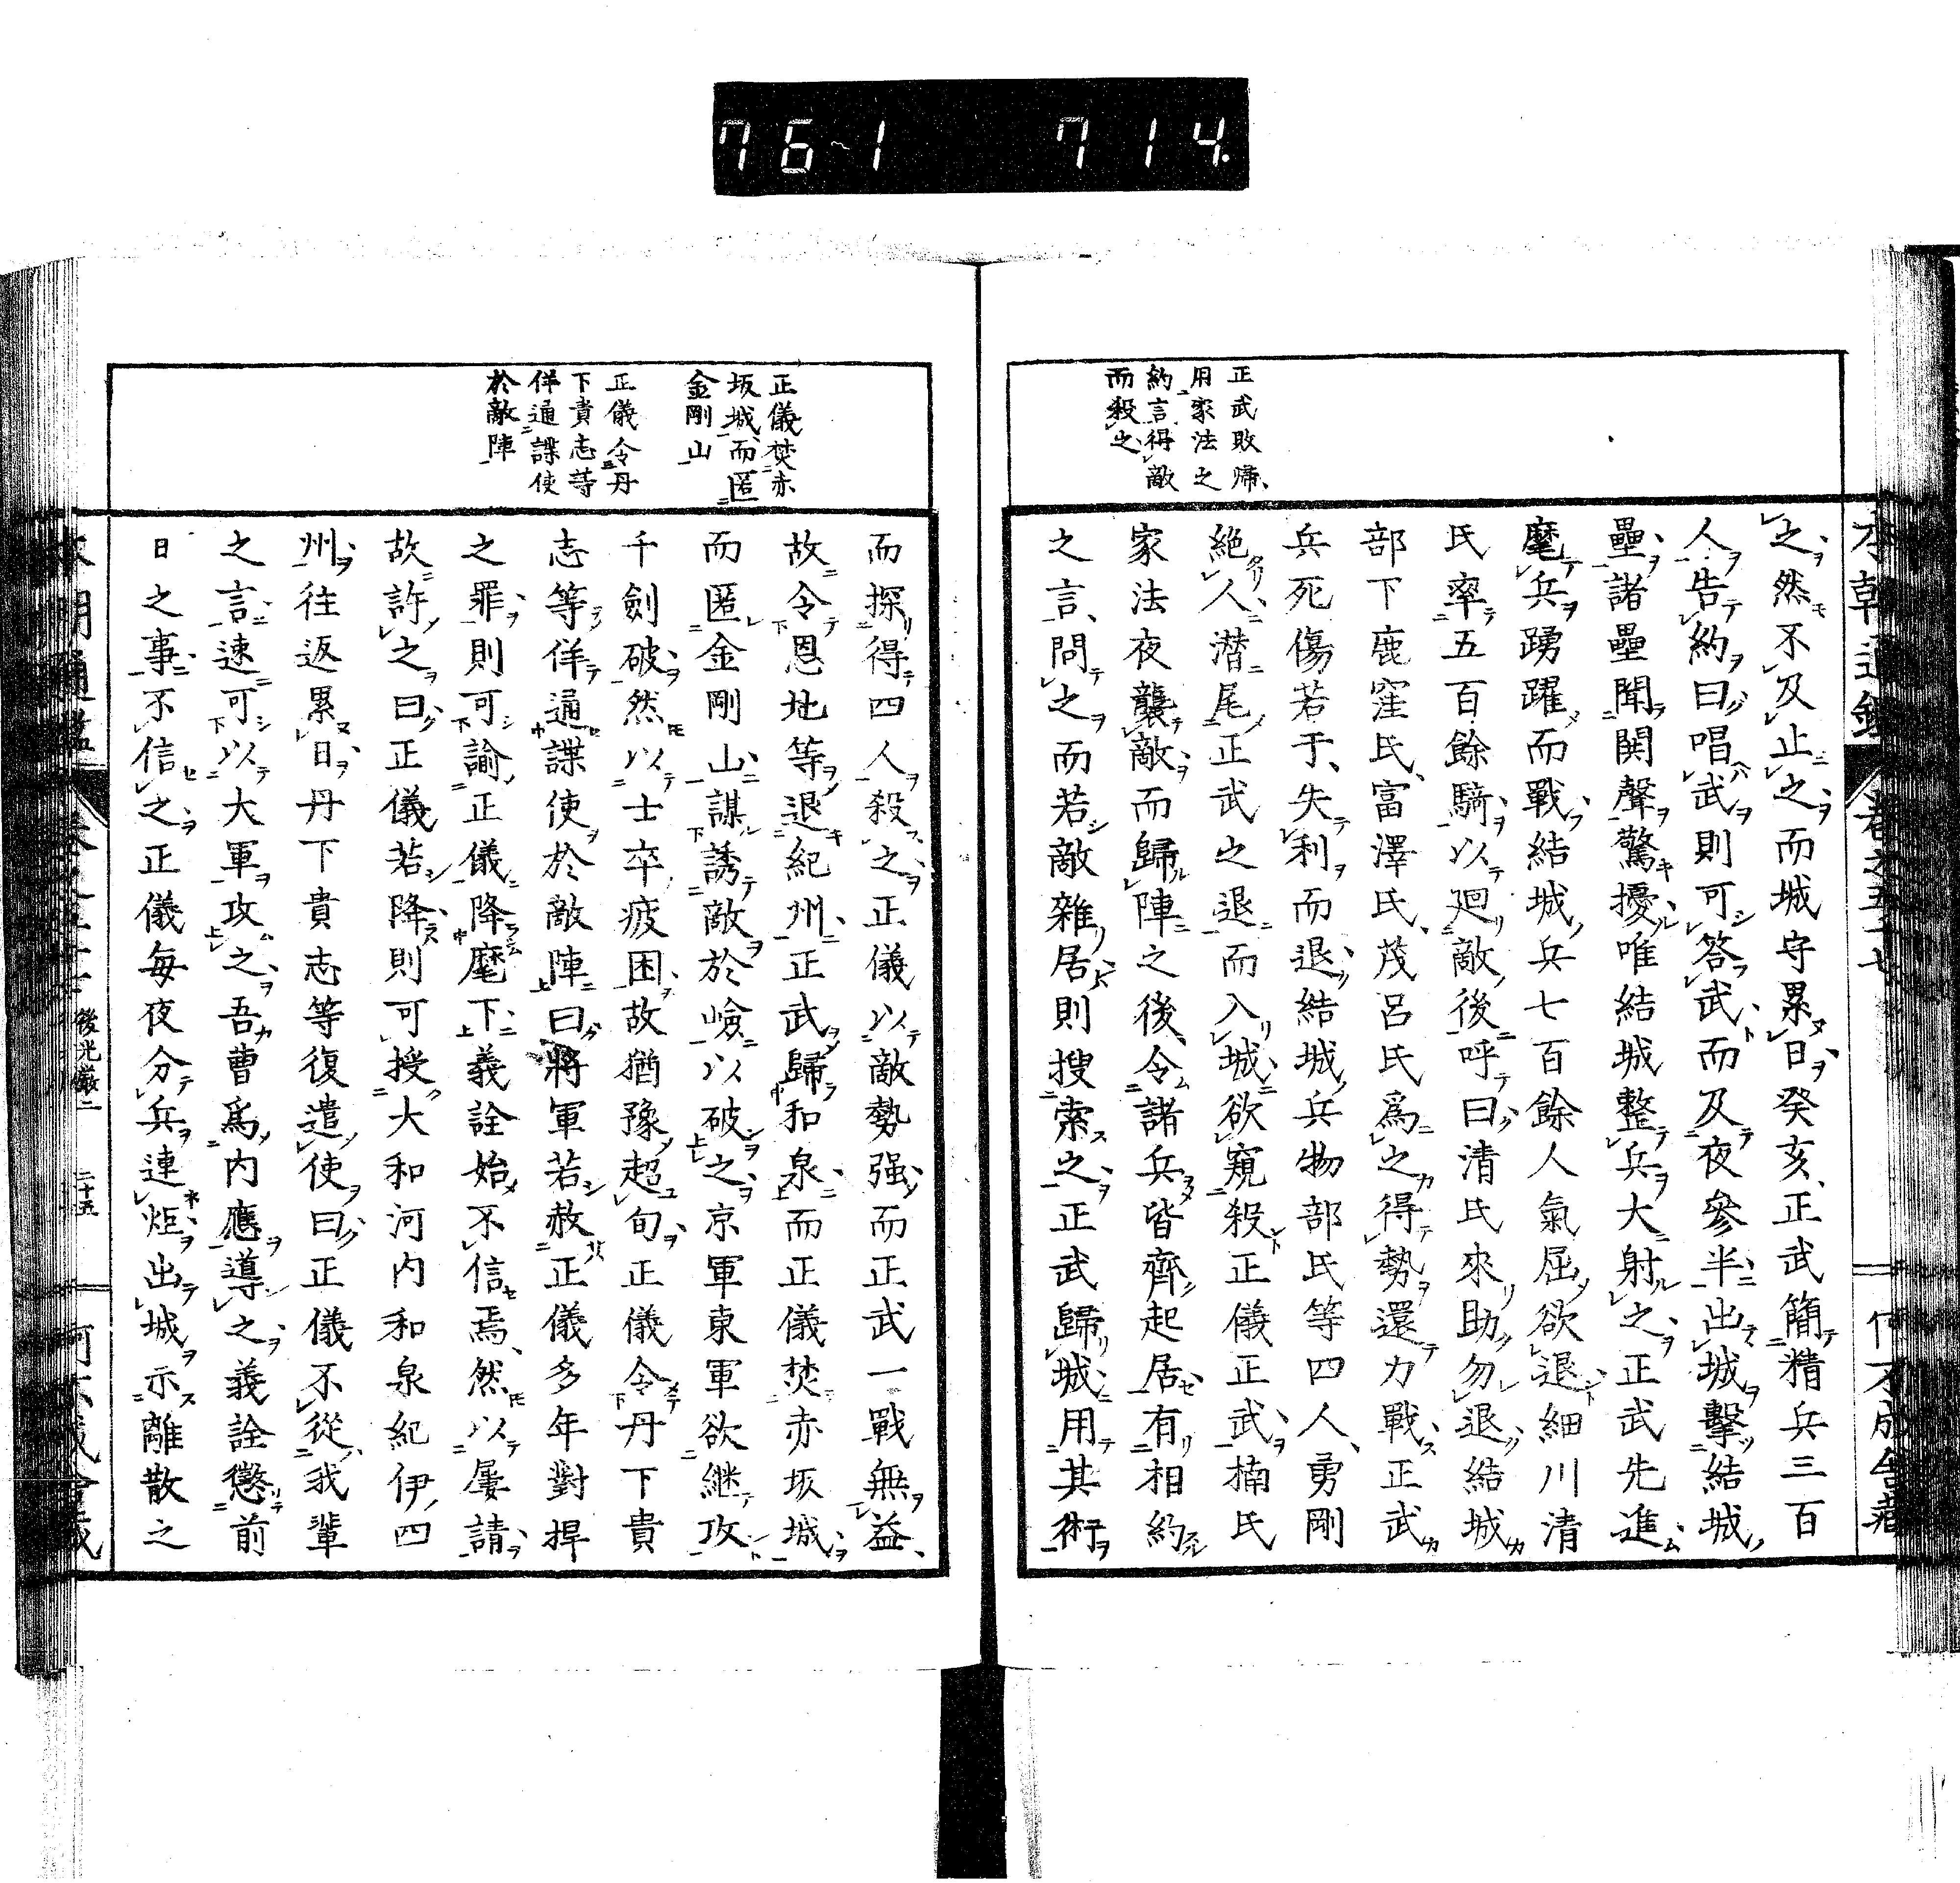 76-1 714.
正武敗帰、
用家法之
約言得敵
而殺之
之然不及止之而城守累日癸亥正武簡精兵三百
人告約曰唱武則可答武而及夜參半出城擊結城
壘諸壘聞鬨聲驚擾唯結城整兵大射之正武先進
麾兵踴躍而戰結城兵七百餘人氣屈欲退細川清
氏率五百餘騎以廻敵後呼曰清氏來助勿退結城
部下鹿窪氏富澤氏茂呂氏爲之得勢還力戰正武
兵死傷若于失利而退結城兵物部氏等四人勇剛
絶人潜尾正武之退而入城欲窺殺正儀正武楠氏
家法夜襲敵而歸陣之後令諸兵皆齊起居有相約
之言問之而若敵雜居則搜索之正武歸城用其術
正儀焚赤
坂城而匿
金剛山
正儀令丹
下貴志等
佯通諜使
於敵陣
而探得四人殺之正儀以敵勢强而正武一戰無益
故令恩地等退紀州正武歸和泉而正儀焚赤坂城
而匿金剛山謀誘敵於嶮以破之京軍東軍欲継攻
千劍破然以士卒疲困故猶豫超旬正儀令丹下貴
志等佯通諜使於敵陣曰將軍若赦正儀多年對捍
之罪則可諭正儀降麾下義詮始不信焉然以屢請
故許之曰正儀若降則可授大和河内和泉紀伊四
州往返累日丹下貴志等復遣使曰正儀不從我輩
之言速可以大軍攻之吾曹爲内應導之義詮懲前
日之事不信之正儀每夜分兵連炬出城示離散之
後光嚴二
二十五